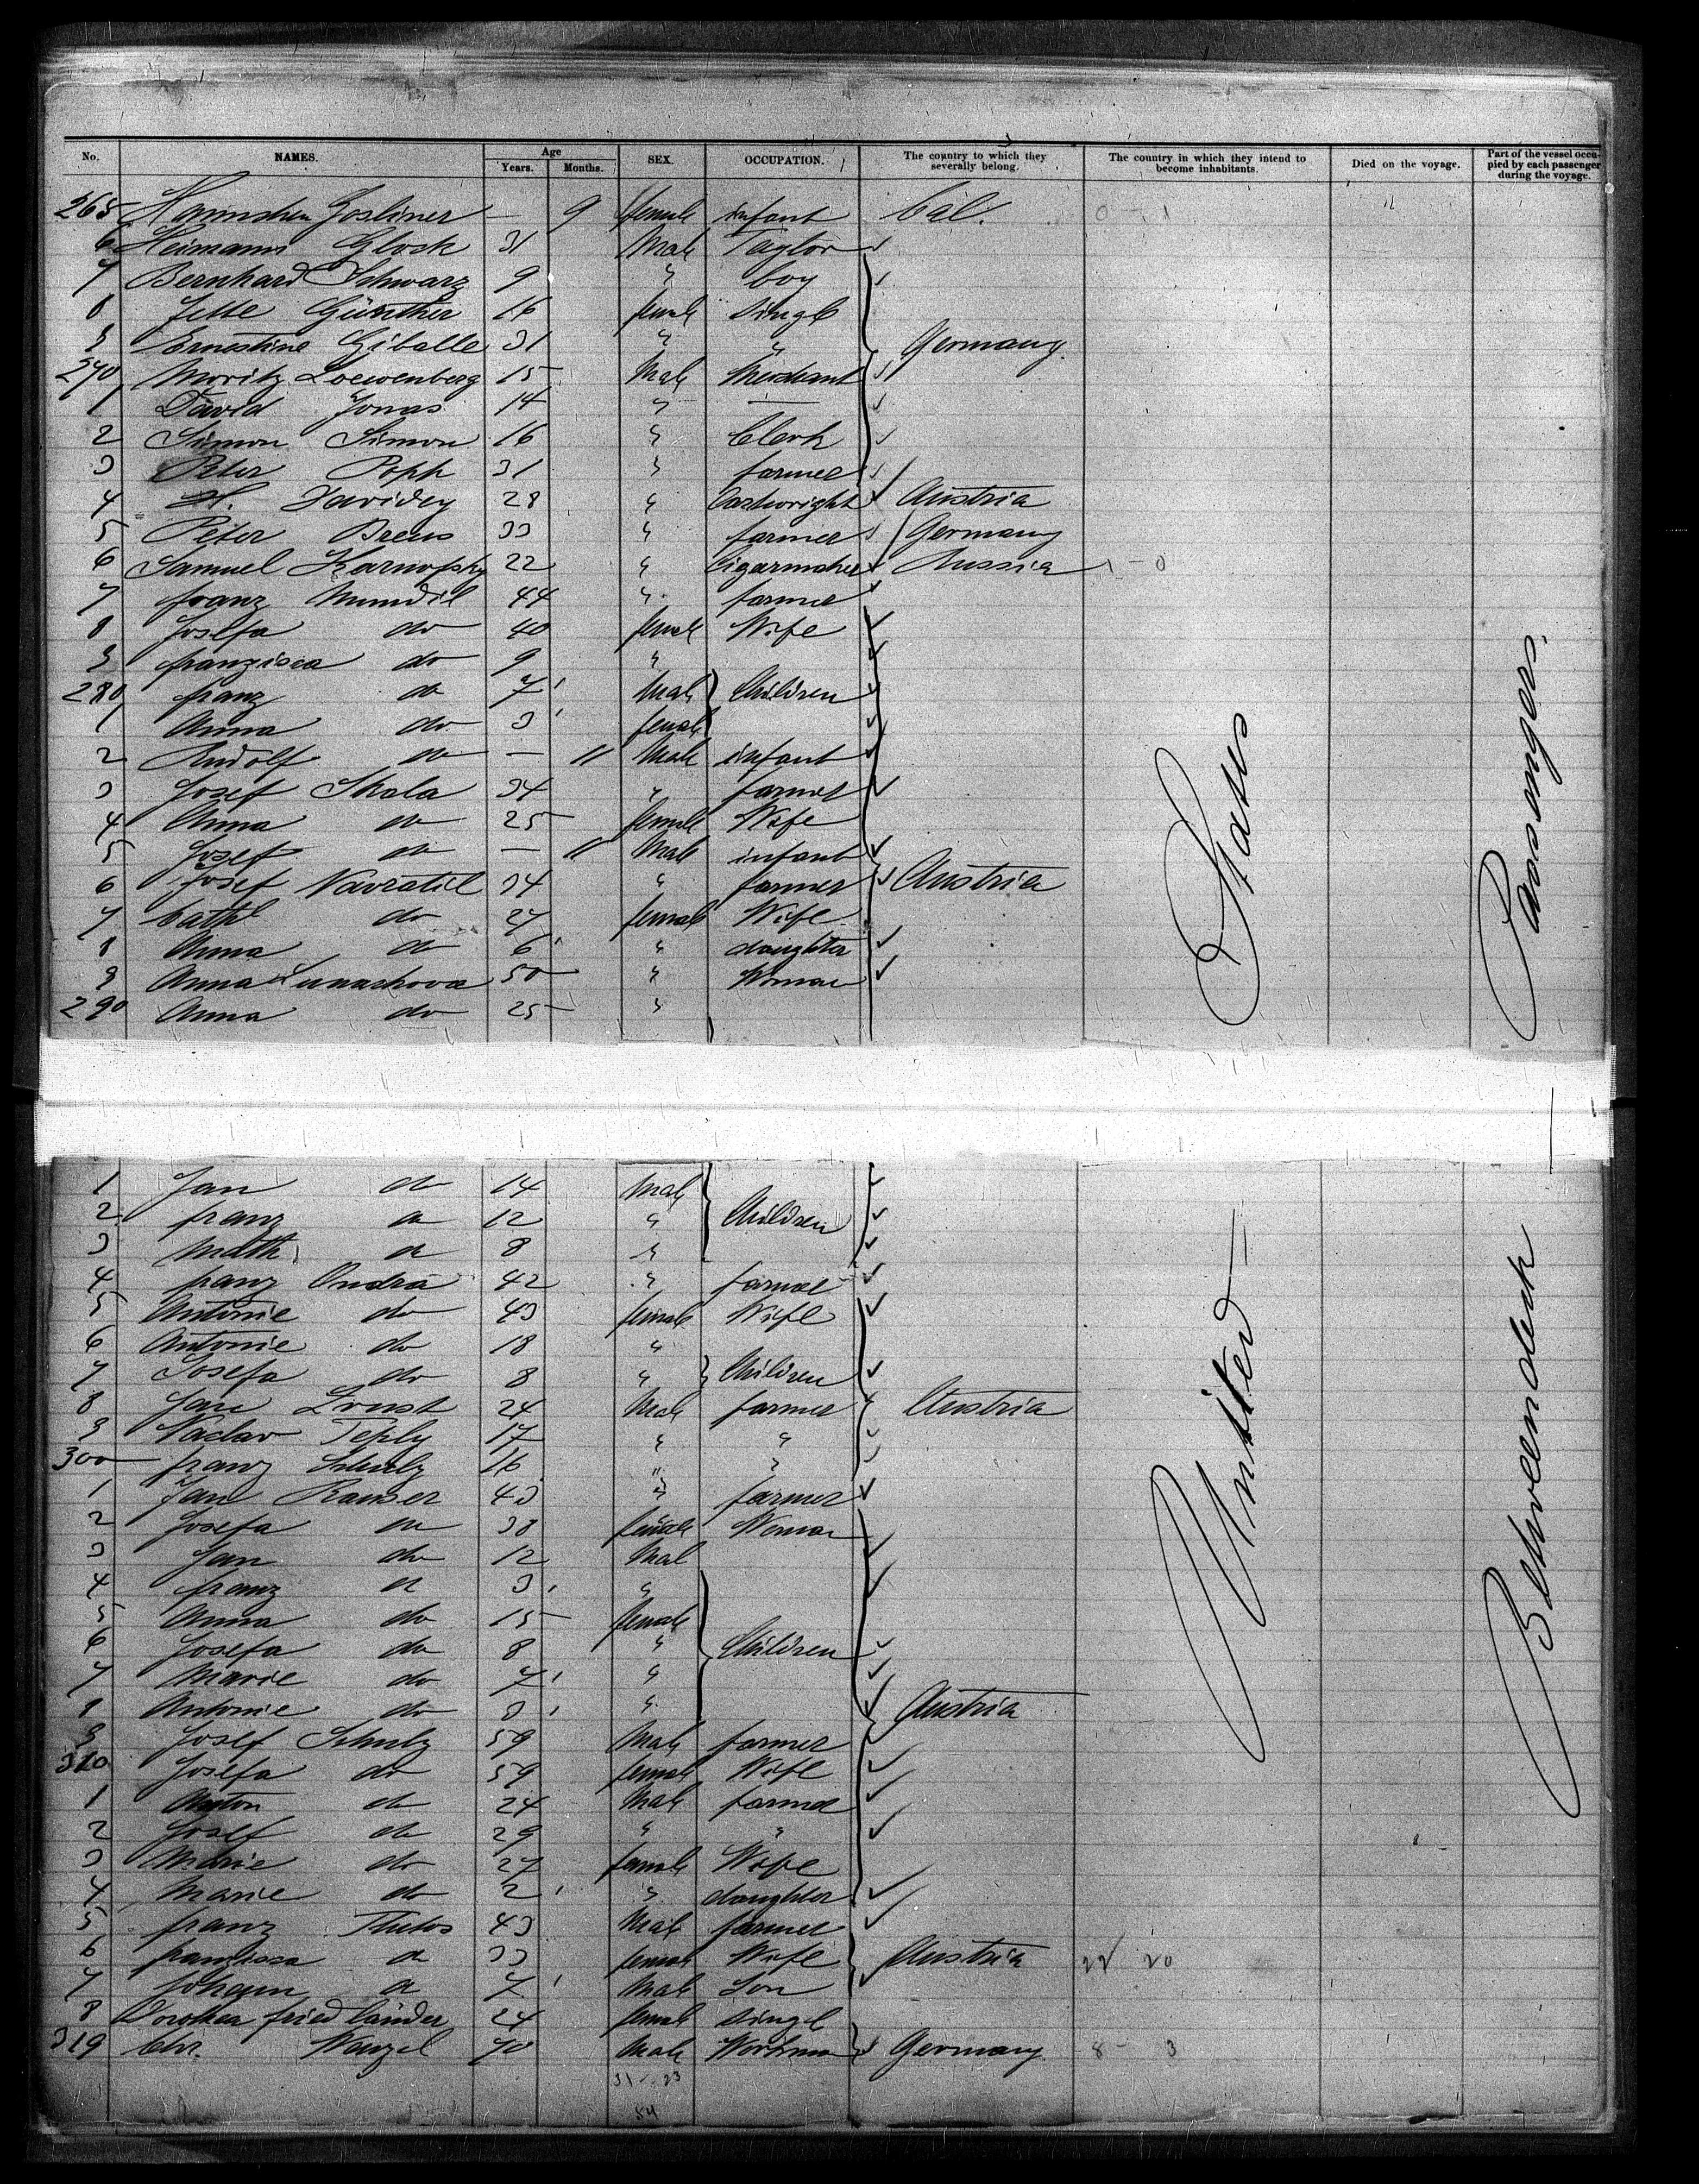 No. NAMES. Age Years. Months. SEX. OCCUPATION. The country to which they severally belong. The country in which they intend to become inhabitants. Died on the voyage. Part of the vessel occupied by each passenger during the voyage.
265 Hannchen Gosliner — 9 female infant Cal.
6 Heimann Glock 31 Male Taylor
7 Bernhard Schwarz 9 " boy
8 Jette Günther 16 female single
9 Ernestine Giballe 31 " " Germany
270 Moritz Loewenberg 15 Male Merchant
1 David Jonas 14 " —
2 Simon Simon 16 " Clerk
3 Peter Popp 31 " farmer
4 H. Davidey 28 " Cartwright Austria
5 Peter Brews 33 " farmer Germany
6 Samuel Karnofsky 22 " Cigarmaker Russia 1 - 0
7 franz Mundil 44 " farmer
8 Josefa do 40 female Wife
9 franzisca do 9 "
280 franz do 7 Male Children
1 Anna do 3 female
2 Rudolf do — 11 Male infant
3 Josef Skala 34 " farmer
4 Anna do 25 female Wife
5 Josef do — 11 Male infant
6 Josef Navratil 34 " farmer Austria
7 Cathl do 27 female Wife
8 Anna do 6 " daughter
9 Anna Lunashova 50 " Woman
290 Anna do 25 "
1 Jan do 14 Male
2 franz do 12 " Children
3 Math. do 8 "
4 franz Ondra 42 " farmer
5 Antonie do 43 female Wife
6 Antonie do 18 "
7 Josefa do 8 " Children
8 Jan Loust 24 Male farmer Austria
9 Vaclav Teply 17 " "
300 franz Schulz 16 " "
1 Jan Rauser 43 " farmer
2 Josefa do 38 female Woman
3 Jan do 12 Male
4 franz do 3 "
5 Anna do 15 female
6 Josefa do 8 " Children
7 Marie do 7 "
8 Antonie do 3 " Austria
9 Josef Schulz 59 Male farmer
310 Josefa do 59 female Wife
1 Anton do 24 Male farmer
2 Josef do 29 " "
3 Marie do 27 female Wife
4 Marie do 2 " daughter
5 franz 43 Male farmer
6 do 33 female Wife Austria 22 20
7 Johann do 7 Male Son
8 Dorothea friedländer 24 female single
319 Chr. Wenzel 70 Male Workman Germany 8 - 3
31 - 23
54
United States
Betweendeck Passengers.